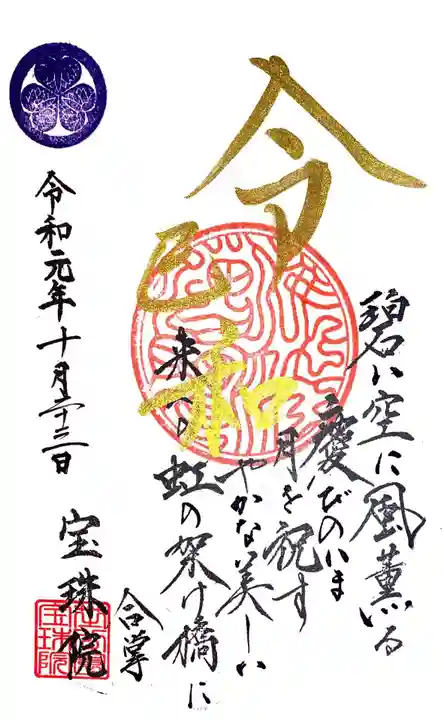 令和
碧い空に風薫る
慶びのいま
月を祝す
やかな美しい
虹の架け橋に
合掌
令和元年十月二十二日
宝珠院